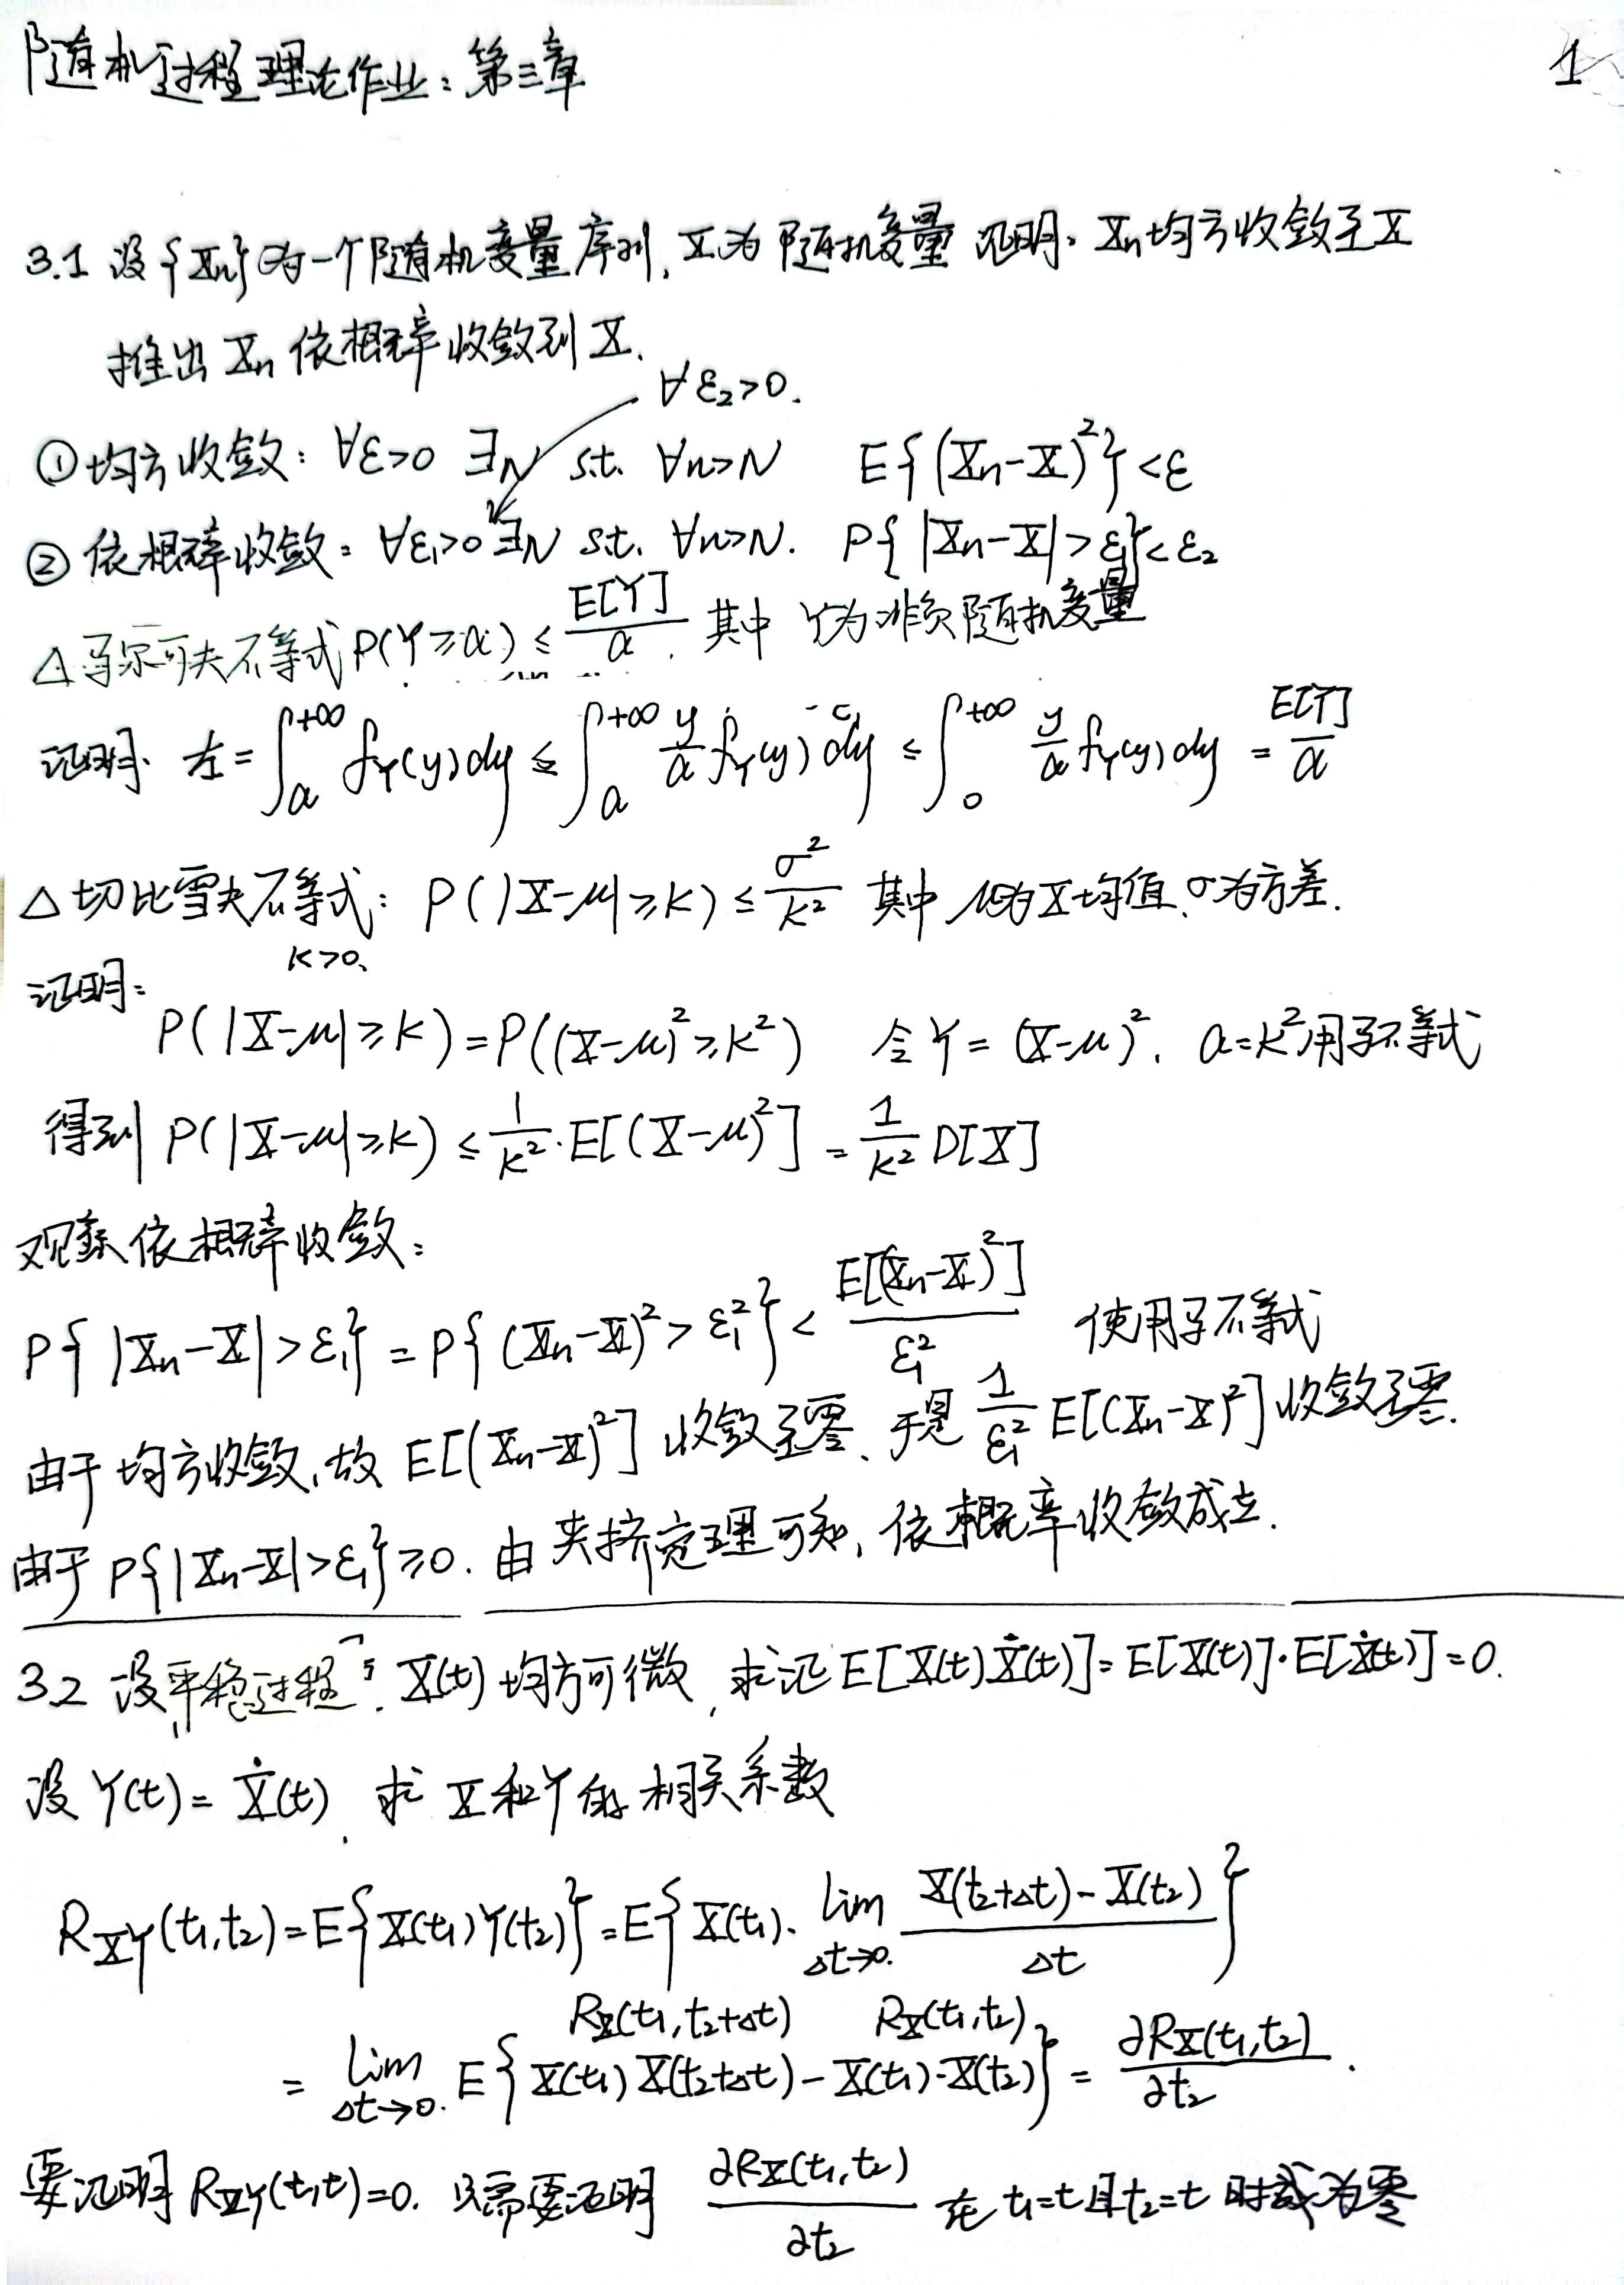 随机过程理论作业：第三章
1
3.1 设{Xn}为一个随机变量序列，X为随机变量 证明：Xn均方收敛至X
推出 Xn 依概率收敛到 X.
∀ε₂>0.
①均方收敛：∀ε>0 ∃N s.t. ∀n>N E{(Xn-X)²}<ε
②依概率收敛：∀ε₁>0 ∃N s.t. ∀n>N. P{|Xn-X|>ε₁}<ε₂
△马尔可夫不等式 P(Y≥a) ≤ E[Y]/a. 其中 Y为非负随机变量
证明：左=∫_a^{+∞} f_Y(y)dy ≤ ∫_a^{+∞} y/a f_Y(y)dy ≤ ∫_0^{+∞} y/a f_Y(y)dy = E[Y]/a
△切比雪夫不等式：P(|X-μ|≥K) ≤ σ²/K² 其中 μ为X均值，σ为方差.
K>0.
证明：
P(|X-μ|≥K)=P((X-μ)²≥K²) 令Y=(X-μ)²，a=K²用马不等式
得到 P(|X-μ|≥K) ≤ 1/K²·E[(X-μ)²] = 1/K² D[X]
观察依概率收敛：
P{|Xn-X|>ε₁} = P{(Xn-X)²>ε₁²} < E[(Xn-X)²]/ε₁² 使用马不等式
由于均方收敛，故 E[(Xn-X)²] 收敛至零、于是 1/ε₁² E[(Xn-X)²]收敛至零.
由于 P{|Xn-X|>ε₁}≥0. 由夹挤定理可知，依概率收敛成立.
3.2 设平稳过程 X(t) 均方可微，求证 E[X(t)Ẋ(t)]=E[X(t)]·E[Ẋ(t)]=0.
设 Y(t)=Ẋ(t)，求 X和Y的相关系数
R_XY(t₁,t₂)=E{X(t₁)Y(t₂)}=E{X(t₁)·lim_{Δt→0.} (X(t₂+Δt)-X(t₂))/Δt}
R_X(t₁,t₂+Δt) R_X(t₁,t₂)
= lim_{Δt→0.} E{X(t₁)X(t₂+Δt)-X(t₁)·X(t₂)} = ∂R_X(t₁,t₂)/∂t₂.
要证明 R_XY(t,t)=0. 只需要证明 ∂R_X(t₁,t₂)/∂t₂ 在 t₁=t且t₂=t 时为零